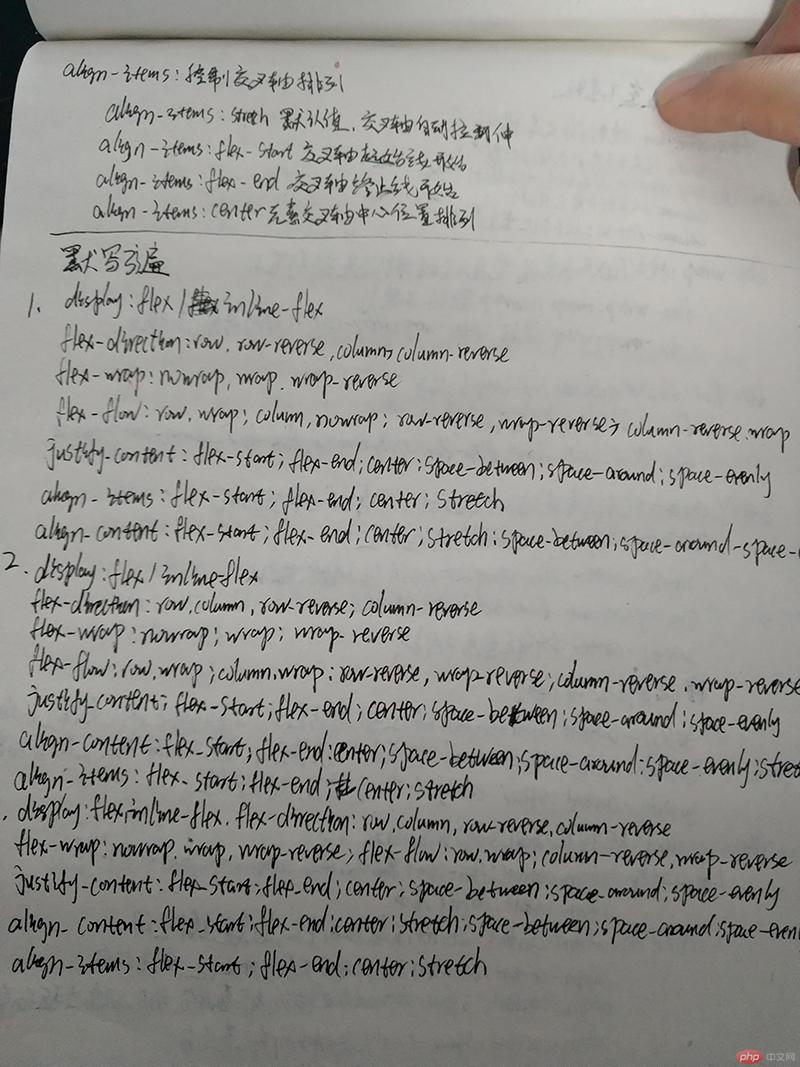 align-items:控制交叉轴排列
align-items:stretch 默认值,交叉轴自动拉伸
align-items:flex-start 交叉轴起始线开始
align-items:flex-end 交叉轴终止线开始
align-items:center元素交叉轴中心位置排列
默写3遍
1. display:flex/inline-flex
flex-direction:row, row-reverse,column,column-reverse
flex-wrap:nowrap, wrap, wrap-reverse
flex-flow:row, wrap; column, nowrap; row-reverse, wrap-reverse; column-reverse, wrap
justify-content:flex-start;flex-end;center;space-between;space-around;space-evenly
align-items:flex-start;flex-end;center;stretch
align-content:flex-start;flex-end;center;stretch;space-between;space-around-space-
2. display:flex/inline-flex
flex-direction:row,column,row-reverse;column-reverse
flex-wrap:nowrap;wrap;wrap-reverse
flex-flow:row,wrap;column,wrap;row-reverse,wrap-reverse;column-reverse,wrap-reverse
justify-content;flex-start;flex-end;center;space-between;space-around;space-evenly
align-content:flex-start;flex-end:center;space-between;space-around;space-evenly;stre
align-items:flex-start;flex-end;center;stretch
display:flex,inline-flex. flex-direction:row,column,row-reverse,column-reverse
flex-wrap:nowrap,wrap,wrap-reverse;flex-flow:row,wrap;column-reverse,wrap-reverse
justify-content:flex-start;flex-end;center;space-between;space-around;space-evenly
align-content:flex-start;flex-end;center;stretch;space-between;space-around;space-even
align-items:flex-start;flex-end;center;stretch
php 中文网